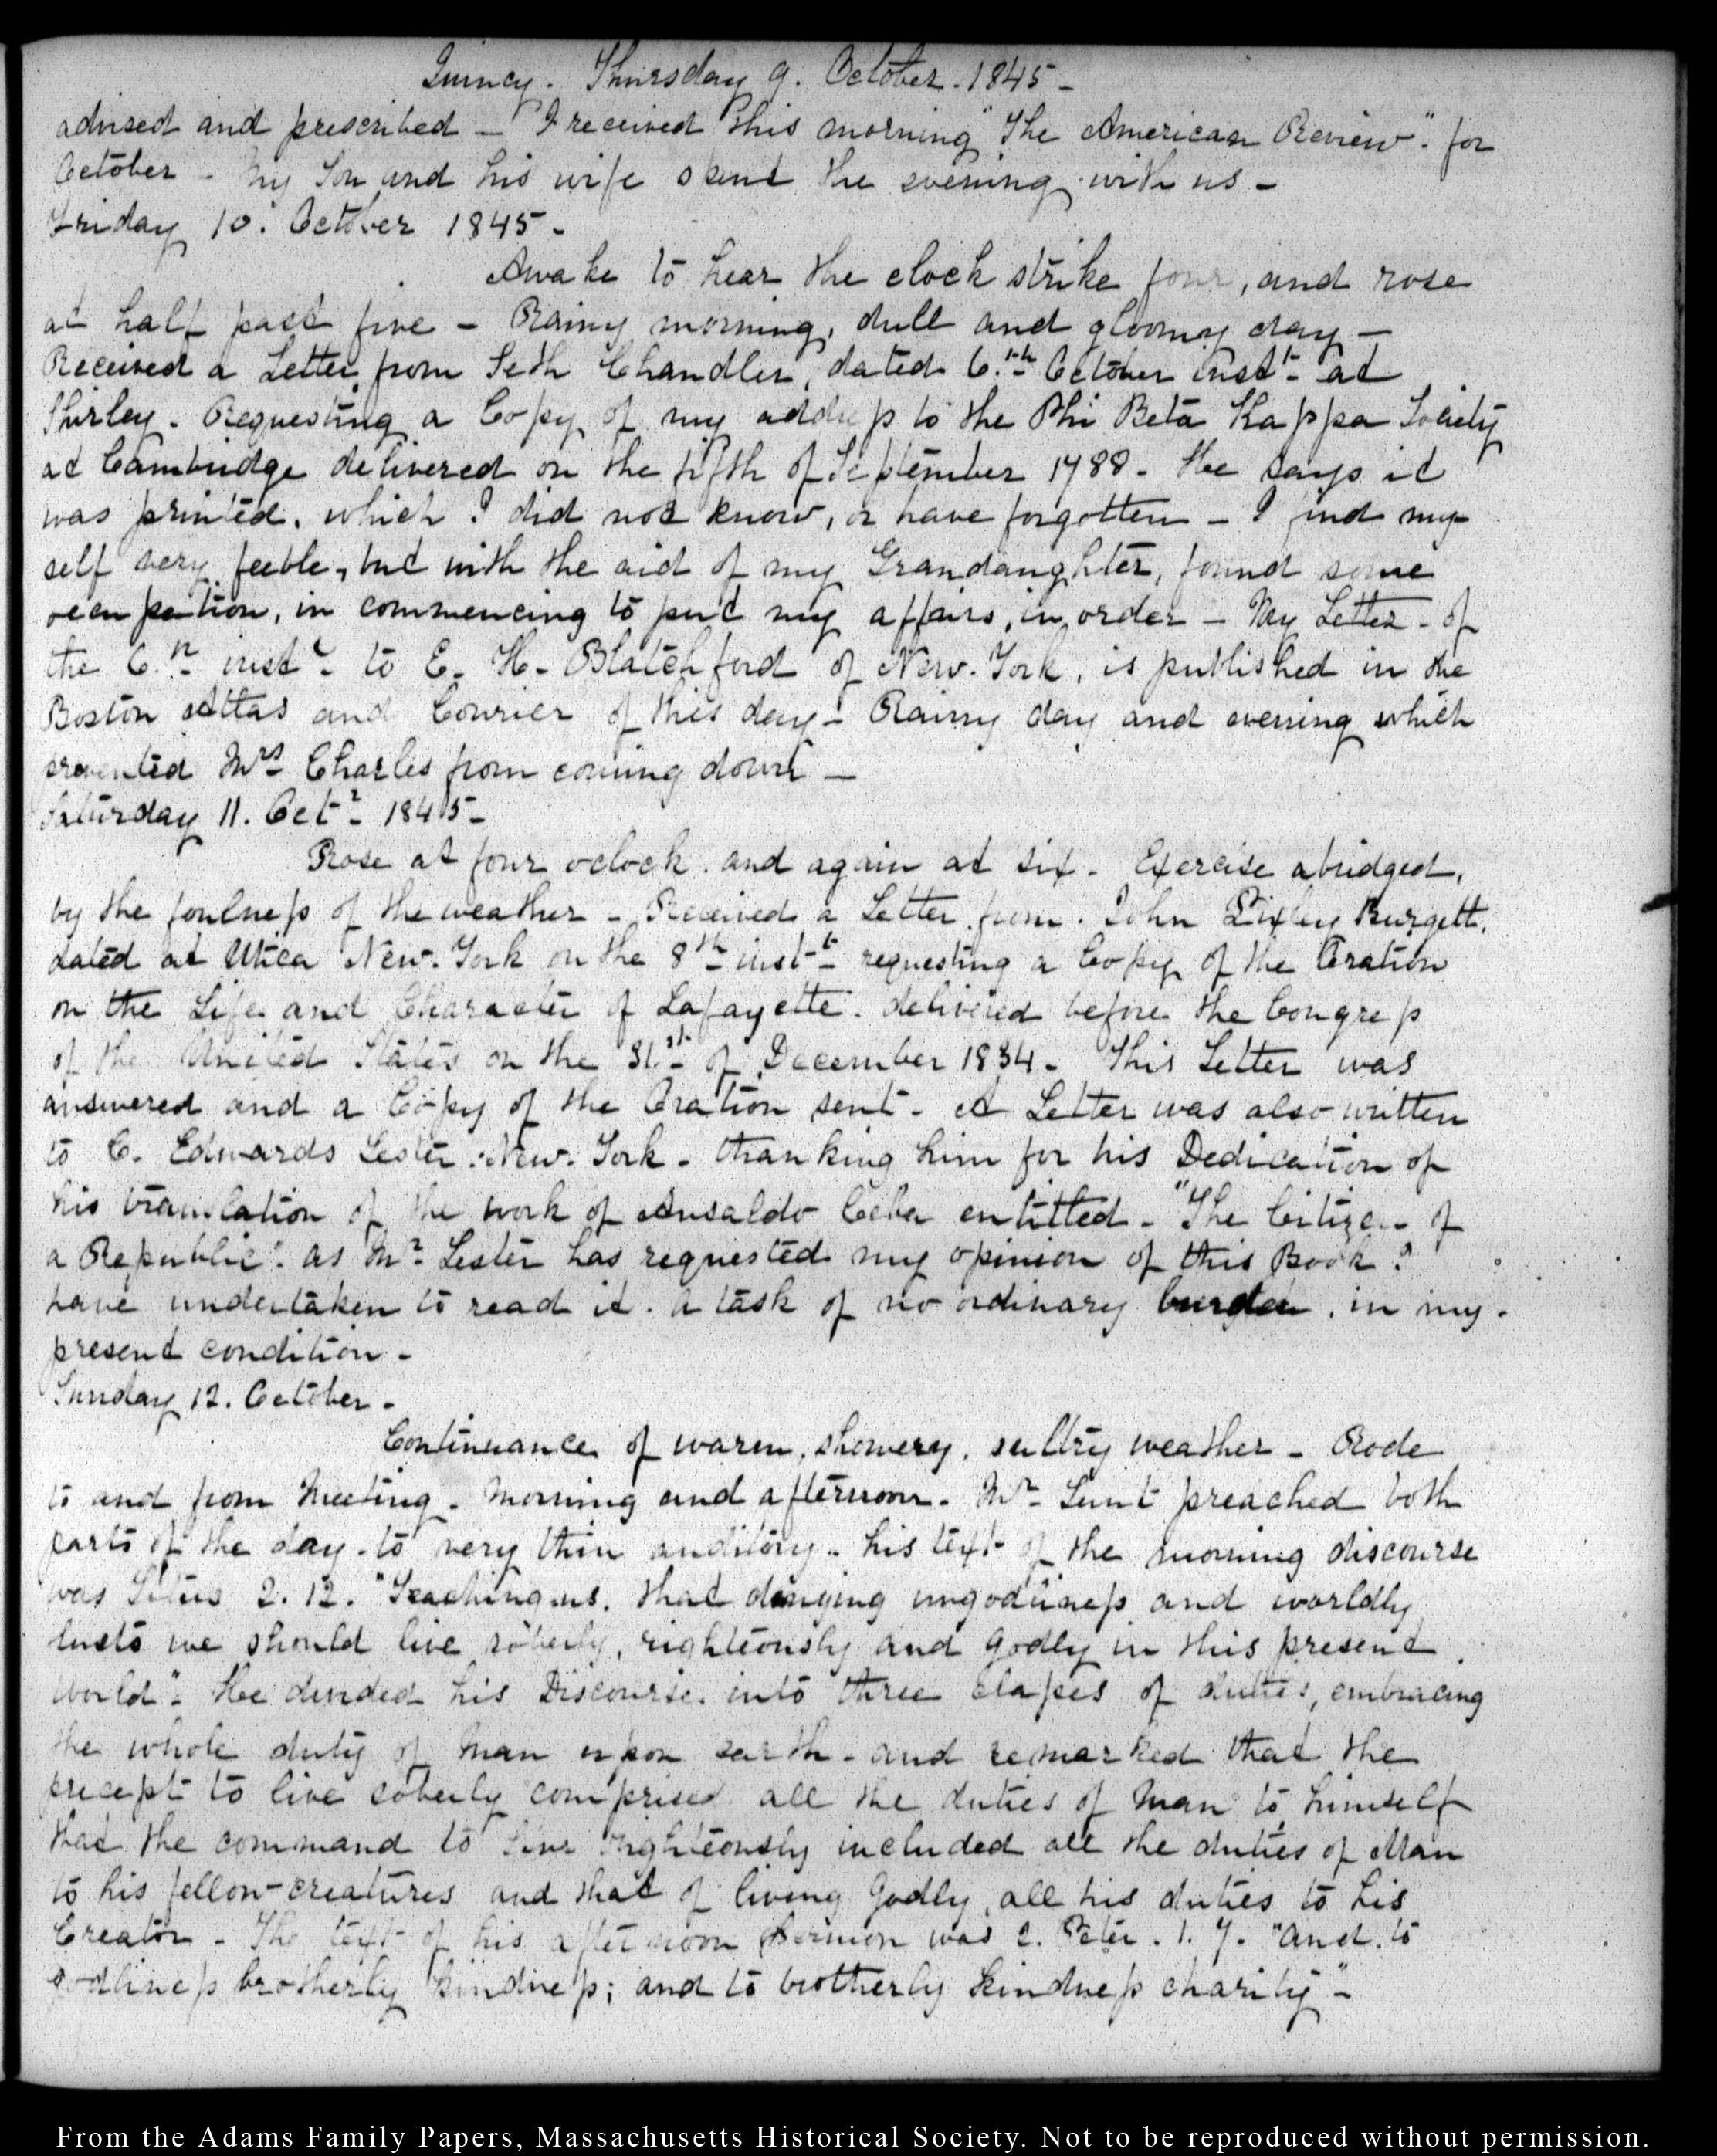 Quincy. Thursday 9. October. 1845 -
advised and prescribed - I received this morning "The American Review". for
October - My Son and his wife spent the evening with us -
Friday 10. October 1845 -
Awake to hear the clock strike four, and rose
at half past five - Rainy morning, dull and gloomy day -
Received a Letter from Seth Chandler, dated 6.th October inst.t at
Shirley. Requesting a Copy of my address to the Phi Beta Kappa Society
at Cambridge delivered on the fifth of September 1788 - He says it
was printed, which I did not know, or have forgotten - I find my
self very feeble, but with the aid of my Grandaughter, found some
occupation, in commencing to put my affairs, in order - My Letter - of
the 6.th inst.t to E. H. Blatchford of New-York, is published in the
Boston Attas and Courier of this day - Rainy day and evening which
prevented Mrs Charles from coming down -
Saturday 11. Oct.r 1845 -
Rose at four oclock. and again at six - Exercise abridged,
by the foulness of the weather - Received a Letter from. John Pixley Burgett.
dated at Utica New-York on the 8th inst.t requesting a Copy of the Oration
on the Life and Character of Lafayette. delivered before the Congress
of the United States on the 31.st of December 1834 - This Letter was
answered and a Copy of the Oration sent - A Letter was also written
to C. Edwards Lester. New-York - thanking him for his Dedication of
his translation of the work of Ansaldo Ceba entitled - "The Citizen of
a Republic". as Mr. Lester has requested my opinion of this Book. I
have undertaken to read it. a task of no ordinary burden, in my.
present condition -
Sunday 12. October -
Continuance of warm, showery, sultry weather - Rode
to and from Meeting - Morning and afternoon. Mr. Lunt preached both
parts of the day - to very thin auditory - his text of the morning discourse
was Titus 2. 12. "Teaching us. that denying ungodliness and worldly
lusts we should live soberly, righteously and godly in this present
world". He divided his Discourse. into three classes of duties, embracing
the whole duty of man upon earth - and remarked that the
precept to live soberly comprised all the duties of Man to himself
that the command to live righteously included all the duties of Man
to his fellow-creatures and that of living Godly, all his duties to his
Creator - The text of his afternoon Sermon was 2. Peter. 1. 7. "And to
godliness brotherly kindness; and to brotherly kindness charity" -
From the Adams Family Papers, Massachusetts Historical Society. Not to be reproduced without permission.